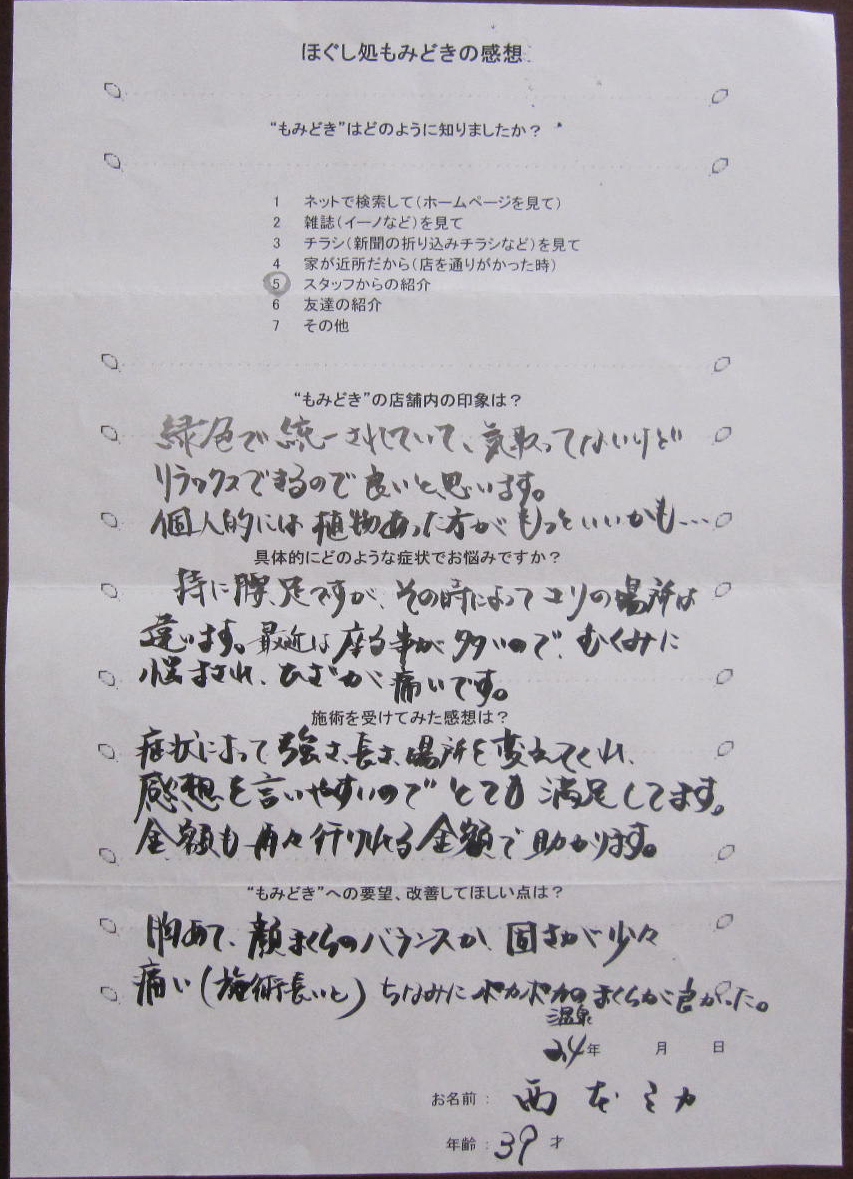 ほぐし処もみどきの感想
“もみどき”はどのように知りましたか？
1 ネットで検索して(ホームページを見て)
2 雑誌(イーノなど)を見て
3 チラシ(新聞の折り込みチラシなど)を見て
4 家が近所だから(店を通りがかった時)
5 スタッフからの紹介
6 友達の紹介
7 その他
“もみどき”の店舗内の印象は？
緑色で統一されていて、気取ってないけど
リラックスできるので良いと思います。
個人的には植物あった方がもっといいかも…
具体的にどのような症状でお悩みですか？
特に腰、足ですが、その時によってコリの場所は
違います。最近は座る事が多いので、むくみに
悩まされ、ひざが痛いです。
施術を受けてみた感想は？
症状によって強さ、長さ、場所を変えてくれ、
感想を言いやすいのでとても満足してます。
金額も再々行けれる金額で助かります。
“もみどき”への要望、改善してほしい点は？
胸あて、顔まくらのバランスか、固さが少々
痛い(施術長いと) ちなみにポカポカの まくらが良かった。
温泉
24年 月 日
お名前： 西本 ミカ
年齢：39 才